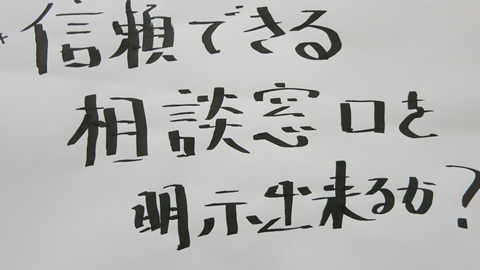 信頼できる
相談窓口を
明示出来るか?